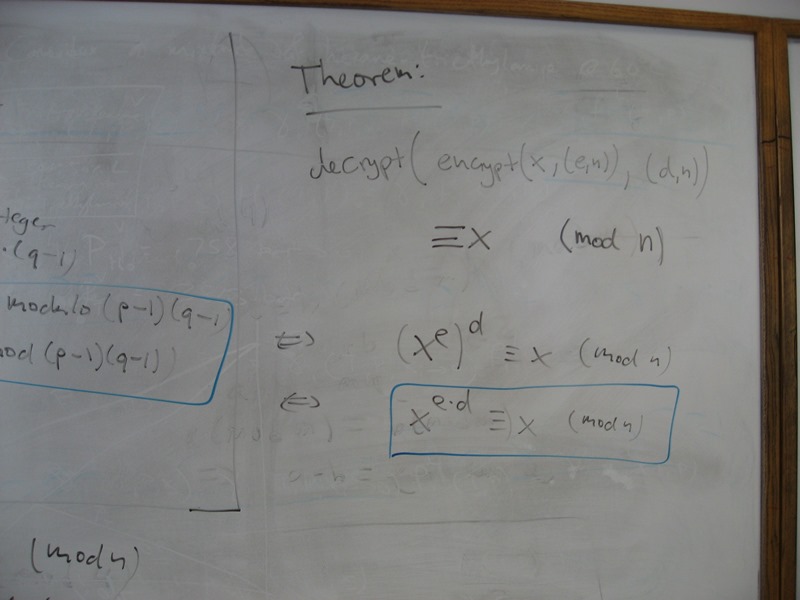 teger
·(q-1)
modulo (p-1)(q-1)
od (p-1)(q-1))
(mod n)
Theorem:
decrypt( encrypt(x, (e,n)), (d,n))
≡x (mod n)
⇔ (x^e)^d ≡ x (mod n)
⇔ x^{e·d} ≡ x (mod n)